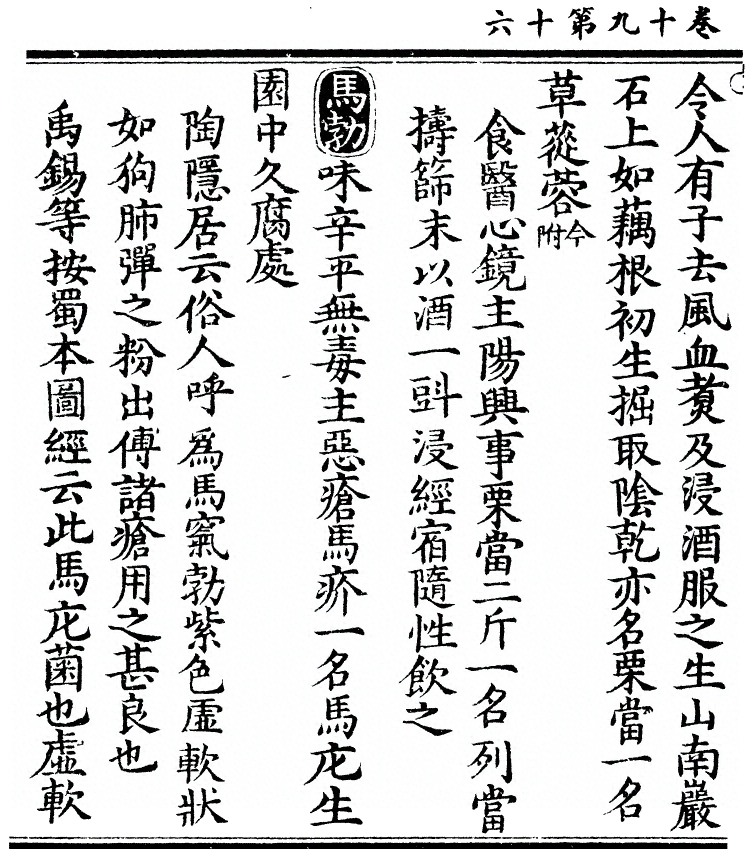 卷十九第十六
令人有子去風血煑及浸酒服之生山南巖
石上如藕根初生掘取陰乾亦名栗當一名
草蓯蓉今附
食醫心鏡主陽興事栗當二斤一名列當
擣篩末以酒一㪷浸經宿隨性飲之
馬勃味辛平無毒主惡瘡馬疥一名馬庀生
園中久腐處
陶隱居云俗人呼爲馬窠勃紫色虛軟狀
如狗肺彈之粉出傅諸瘡用之甚良也
禹錫等按蜀本圖經云此馬庀菌也虛軟